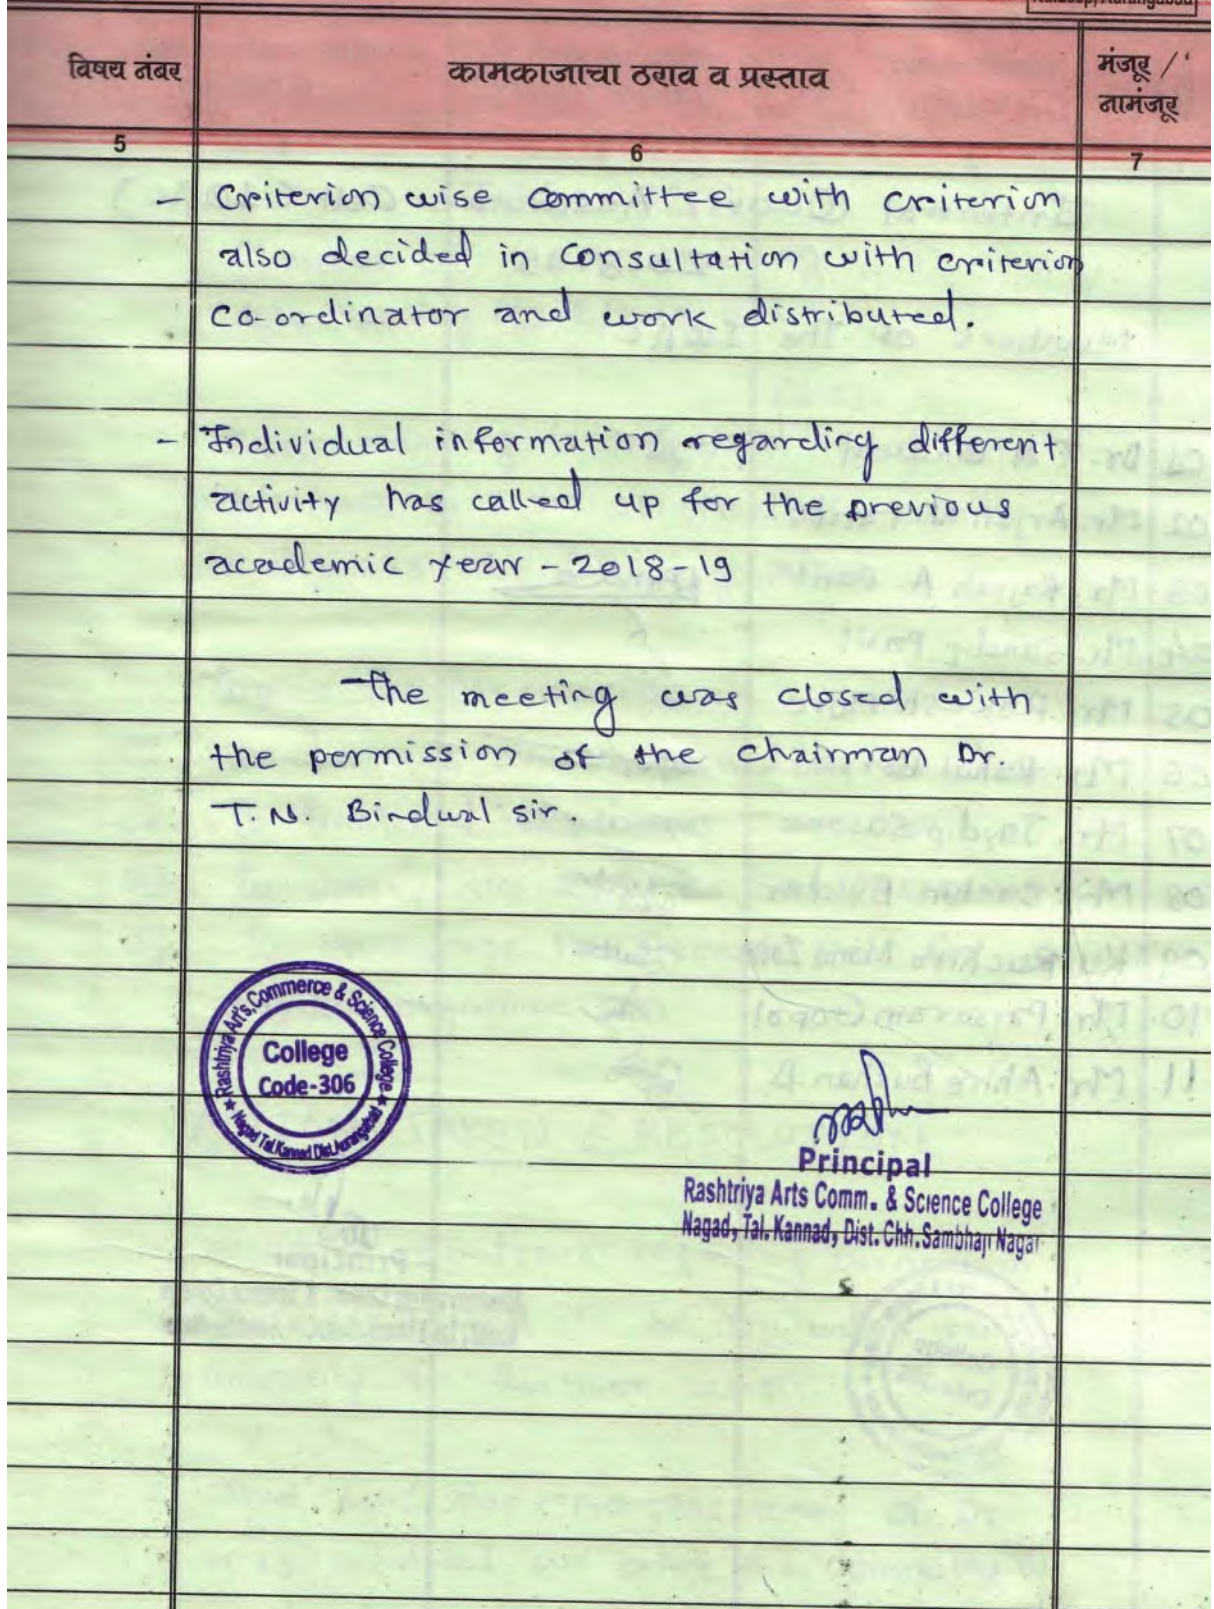 विषय नंबर
कामकाजाचा ठराव व प्रस्ताव
मंजूर /
नामंजूर
5
6
7
- Criterion wise committee with criterion
also decided in consultation with criterion
co-ordinator and work distributed.
- Individual information regarding different
activity has called up for the previous
academic year - 2018-19
The meeting was closed with
the permission of the chairman Dr.
T.N. Bindwal sir.
Rashtriya Art's, Commerce & Science College
College
Code-306
Nagad Tal. Kannad Dist. Aurangabad
Principal
Rashtriya Arts Comm. & Science College
Nagad, Tal. Kannad, Dist. Chh. Sambhaji Nagar